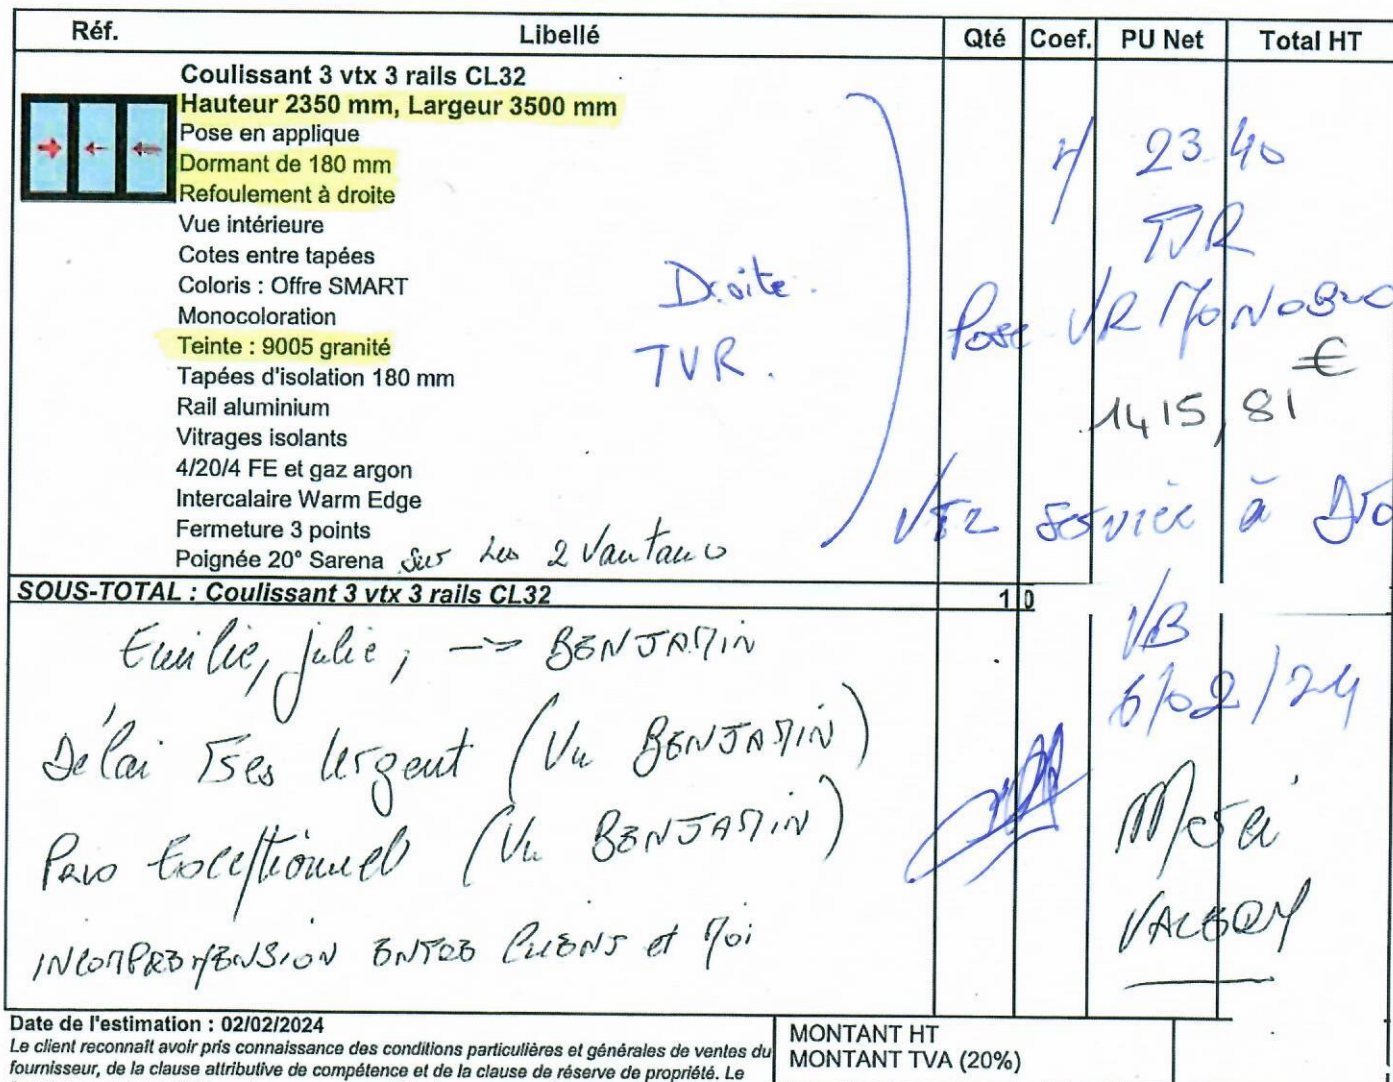 Réf. Libellé Qté Coef. PU Net Total HT
Coulissant 3 vtx 3 rails CL32
Hauteur 2350 mm, Largeur 3500 mm
Pose en applique
Dormant de 180 mm
Refoulement à droite
Vue intérieure
Cotes entre tapées
Coloris : Offre SMART
Monocoloration
Teinte : 9005 granité
Tapées d'isolation 180 mm
Rail aluminium
Vitrages isolants
4/20/4 FE et gaz argon
Intercalaire Warm Edge
Fermeture 3 points
Poignée 20° Sarena sur les 2 Vantaux
Droite.
TVR.
23 40
TVR
Pose VR
€
1415,81
à
SOUS-TOTAL : Coulissant 3 vtx 3 rails CL32 1 0
Emilie, julie, -> BENJAMIN
Délai Très Urgent (Vu BENJAMIN)
Prix Exceptionnel (Vu BENJAMIN)
INCOMPREHENSION ENTRE Client et Moi
VB
6/02/24
Merci
VALERY
Date de l'estimation : 02/02/2024
Le client reconnaît avoir pris connaissance des conditions particulières et générales de ventes du
fournisseur, de la clause attributive de compétence et de la clause de réserve de propriété. Le
MONTANT HT
MONTANT TVA (20%)